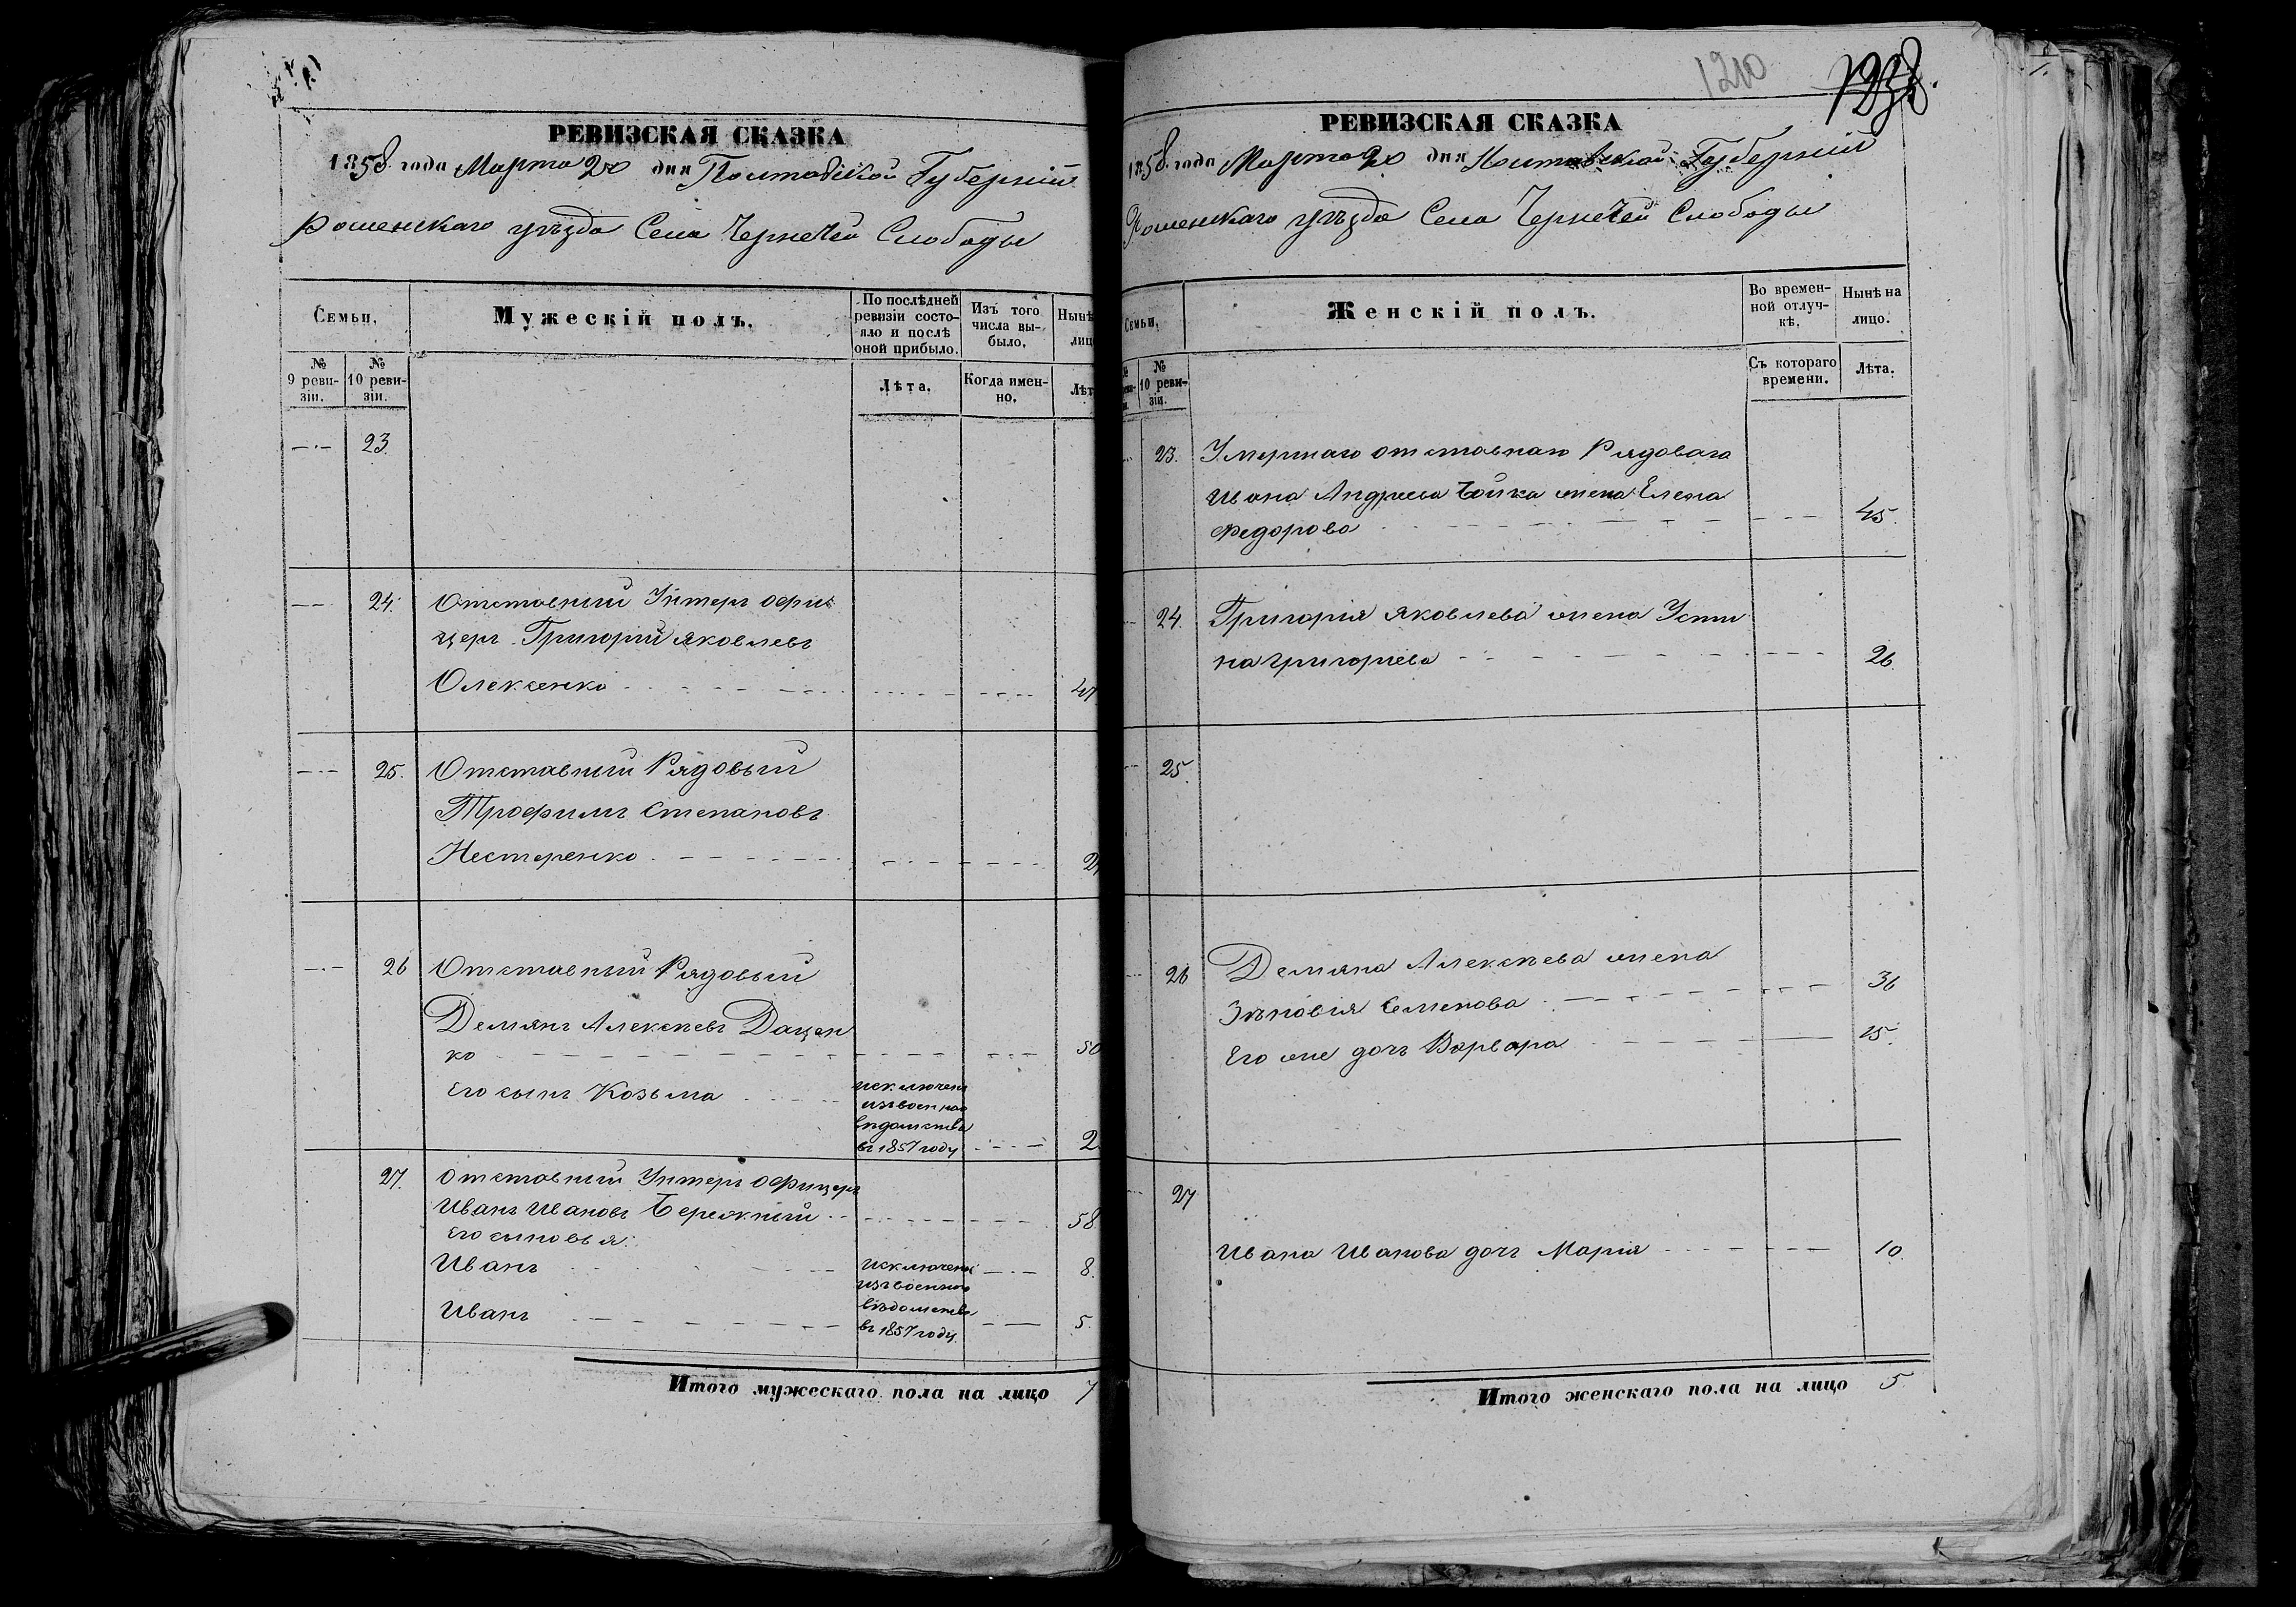 РЕВИЗСКАЯ СКАЗКА
1858 года Марта 20 дня Полтавской Губерніи
Роменскаго уѣзда Села Чернечей Слободы
Семьи.
Мужескій полъ.
По послѣдней
ревизіи состо-
яло и послѣ
оной прибыло.
Изъ того
числа вы-
было.
Нынѣ
лиц
№
9 реви-
зіи.
№
10 реви-
зіи.
Лѣта.
Когда имен-
но.
Лѣт
23.
24. Отставный Унтеръ Офи
церъ Григорій Яковлевъ
Олексенко 47
25. Отставный Рядовый
Трофимъ Степановъ
Нестеренко 2
26 Отставный Рядовый
Демянъ Алексѣевъ Дацен
ко 50
Его сынъ Козьма
исключенъ
изъ военнаго
вѣдомства
въ 1857 году 2
27. Отставный Унтеръ Офицеръ
Иванъ Ивановъ Бережный 58.
Его сыновья:
Иванъ 8.
Иванъ 5.
исключены
изъ военнаго
вѣдомства
въ 1857 году.
Итого мужескаго пола на лицо 7
1210
РЕВИЗСКАЯ СКАЗКА
1858 года Марта 20 дня Полтавской Губерніи
Роменскаго уѣзда Села Чернечей Слободы
Семьи.
Женскій полъ.
Во времен-
ной отлуч-
кѣ.
Нынѣ на
лицо.
№
10 реви-
зіи.
Съ котораго
времени.
Лѣта.
23. Умершаго отставнаго Рядоваго
Ивана Андреева Бойка жена Елена
Федорова 45.
24. Григорія Яковлева жена Усти
на Григорьева 26.
25.
26 Демяна Алексѣева жена
Зѣновія Семенова 36
Его же дочь Варвара 15.
27
Ивана Иванова дочь Марія 10.
Итого женскаго пола на лицо 5